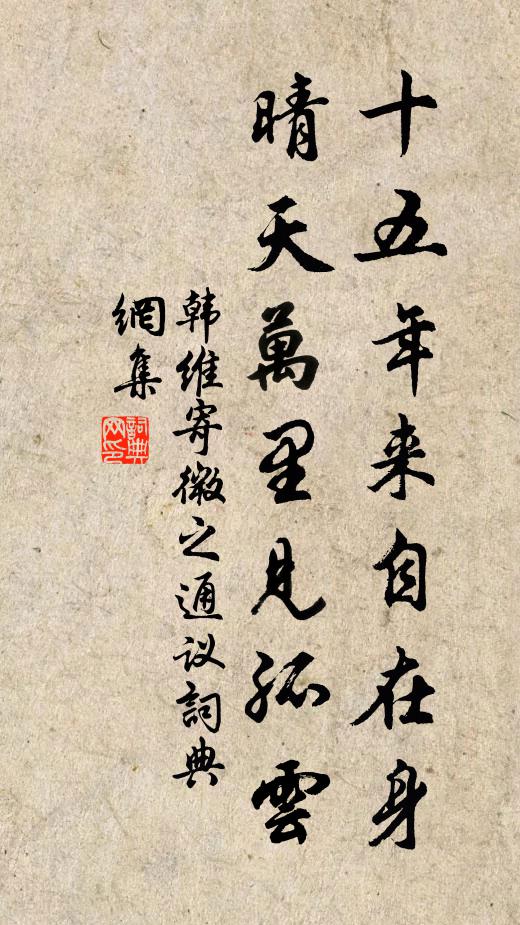 十五年来自在身
晴天萬里見孤雲
韩維寄微之通议詞典
網集
詞典
网印